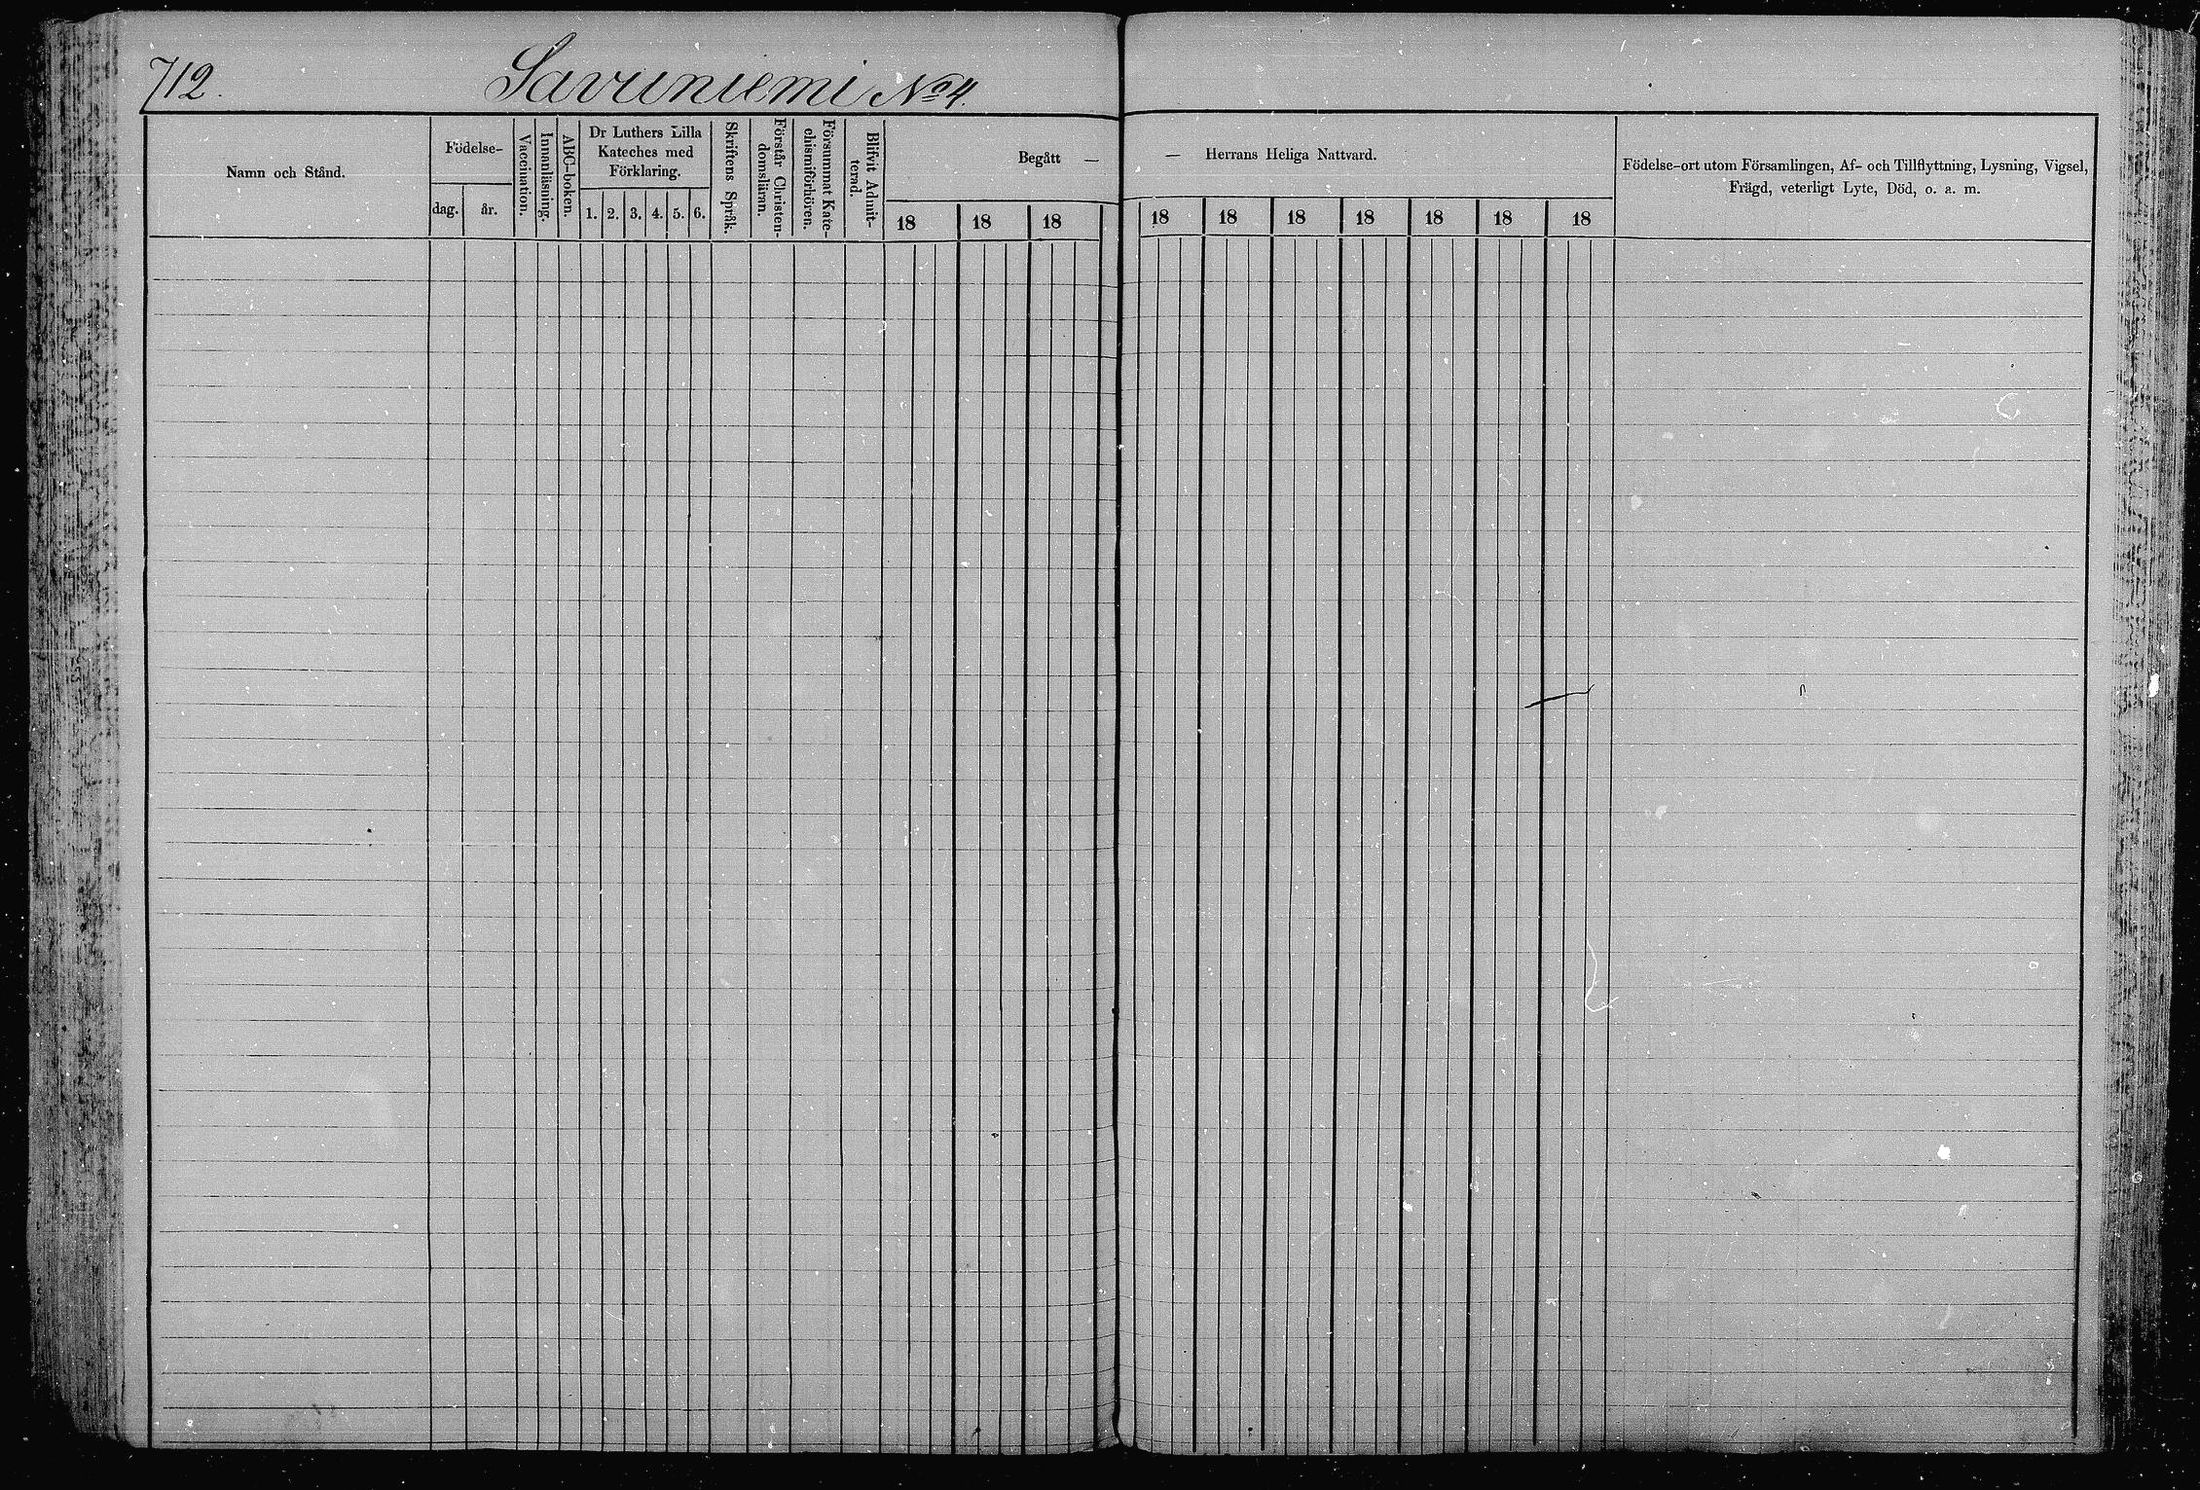 712.
Savuniemi No 4.
Namn och Stånd.
Födelse-
dag.
år.
Vaccination.
Innanläsning.
ABC-boken.
Dr Luthers Lilla
Kateches med
Förklaring.
1. 2. 3. 4. 5. 6.
Skriftens Språk.
Förstår Christen-
domsläran.
Försummat Kate-
chismiförhören.
Blifvit Admit-
terad.
Begått —
18 18 18
— Herrans Heliga Nattvard.
18 18 18 18 18 18 18
Födelse-ort utom Församlingen, Af- och Tillflyttning, Lysning, Vigsel,
Frägd, veterligt Lyte, Död, o. a. m.